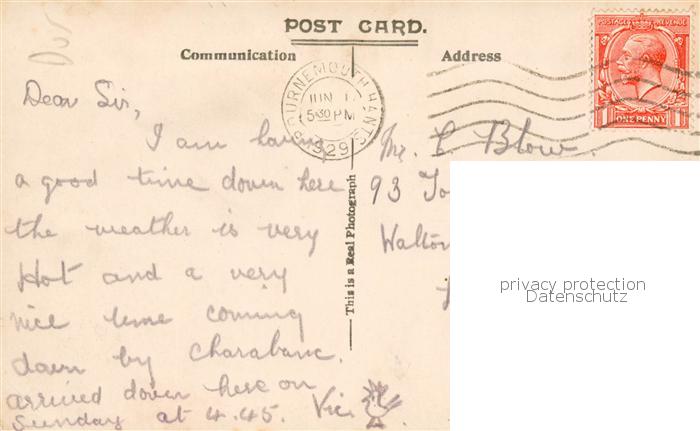 POST CARD.
Communication
Address
BOURNEMOUTH HANTS
JUN 1
5:30 PM
1929
POSTAGE REVENUE
ONE PENNY
Dear Sir,
I am having
a good time down here
the weather is very
Hot and a very
nice time coming
down by Charabanc.
arrived down here on
Sunday at 4.45. Vic.
This is a Real Photograph
Mr. C Blow.
93
Walton
privacy protection
Datenschutz